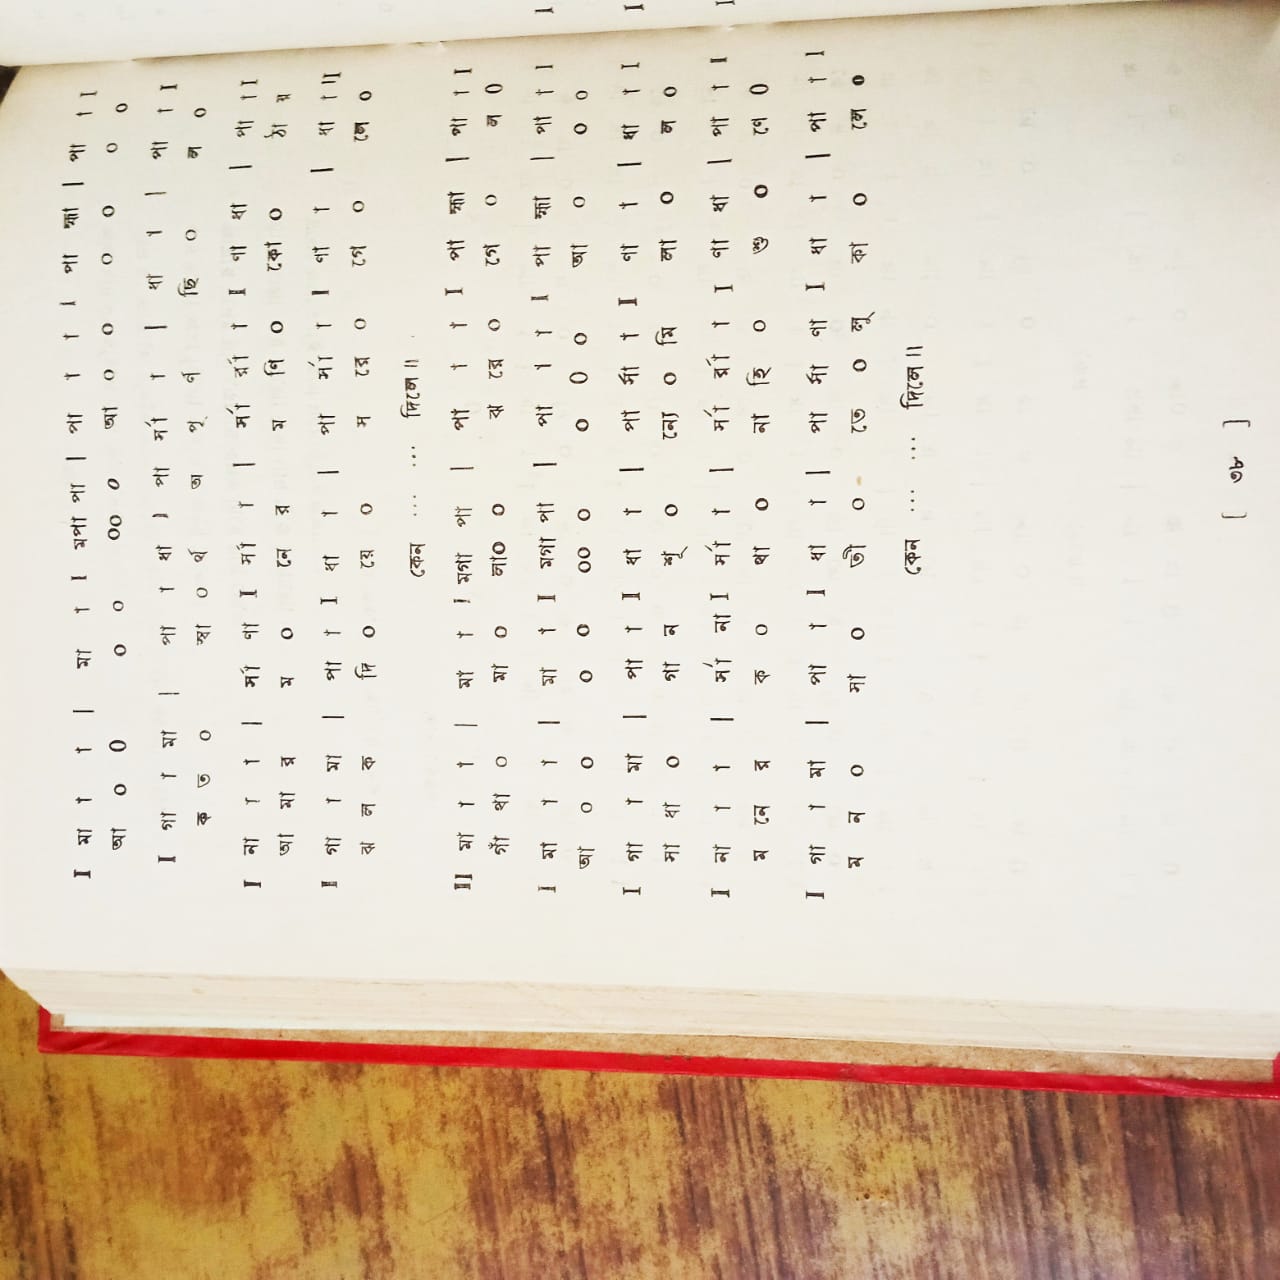 I মা † † | মা † I মপা পা | পা † † I পা হ্মা | পা † I
আ ০ ০ ০ ০ ০০ ০ আ ০ ০ ০ ০ ০ ০
I গা † মা | পা † ধা I পা র্সা † | ধা † | পা † I
ক ত ০ স্বা ০ র্থ অ পূ র্ণ ছি ০ ল ০
I না † † | র্সা ণা I র্সা † | র্সা র্রা † I ণা ধা | পা † I
আ মা র ম ০ নে র ম ণি ০ কো ০ ঠা য়
I গা † মা | পা † I ধা † | পা র্সা † I ণা † | ধা † II
ঝ ল ক দি ০ য়ে ০ ম রে ০ গে ০ লে ০
কেন ... ... দিলে॥
II মা † † | মা † I মগা পা | পা † † I পা হ্মা | পা † I
গাঁ থা ০ মা ০ লা০ ০ ঝ রে ০ গে ০ ল ০
I মা † † | মা † I মগা পা | পা † † I পা হ্মা | পা † I
আ ০ ০ ০ ০ ০০ ০ ০ ০ ০ আ ০ ০ ০
I গা † মা | পা † I ধা † | পা র্সা † I ণা † | ধা † I
সা ধা ০ গা ন শূ ০ ন্যে ০ মি লা ০ ল ০
I না † † | র্সা না I র্সা † | র্সা র্রা † I ণা ধা | পা † I
ম নে র ক ০ থা ০ না হি ০ শু ০ ণে ০
I গা † মা | পা † I ধা † | পা র্সা ণা I ধা † | পা † I
ম ন ০ সা ০ তী ০ তে ০ লূ কা ০ লে ০
কেন ... ... দিলে॥
[ ৩৮ ]